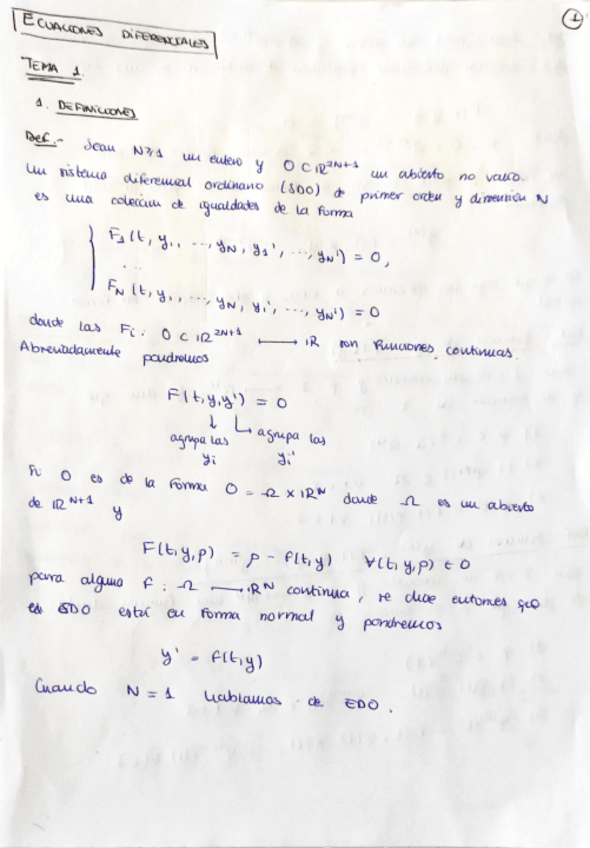 1
ECUACIONES DIFERENCIALES
TEMA 1
1. DEFINICIONES
Def.- Sean N≥1 un entero y O ⊂ ℝ^{2N+1} un abierto no vacío.
Un sistema diferencial ordinario (SDO) de primer orden y dimensión N
es una colección de igualdades de la forma
F₁(t, y₁, ..., y_N, y₁', ..., y_N') = 0,
...
F_N(t, y₁, ..., y_N, y₁', ..., y_N') = 0
donde las Fᵢ: O ⊂ ℝ^{2N+1} ⟼ ℝ son funciones continuas.
Abreviadamente pondremos
F(t, y, y') = 0
↓ ↳ agrupa las
agrupa las
yᵢ yᵢ'
Si O es de la forma O = Ω × ℝ^N donde Ω es un abierto
de ℝ^{N+1} y
F(t, y, p) = p - f(t, y) ∀(t, y, p) ∈ O
para alguna f: Ω ⟼ ℝ^N continua, se dice entonces que
el SDO está en forma normal y pondremos
y' = f(t, y)
Cuando N = 1 hablamos de EDO.